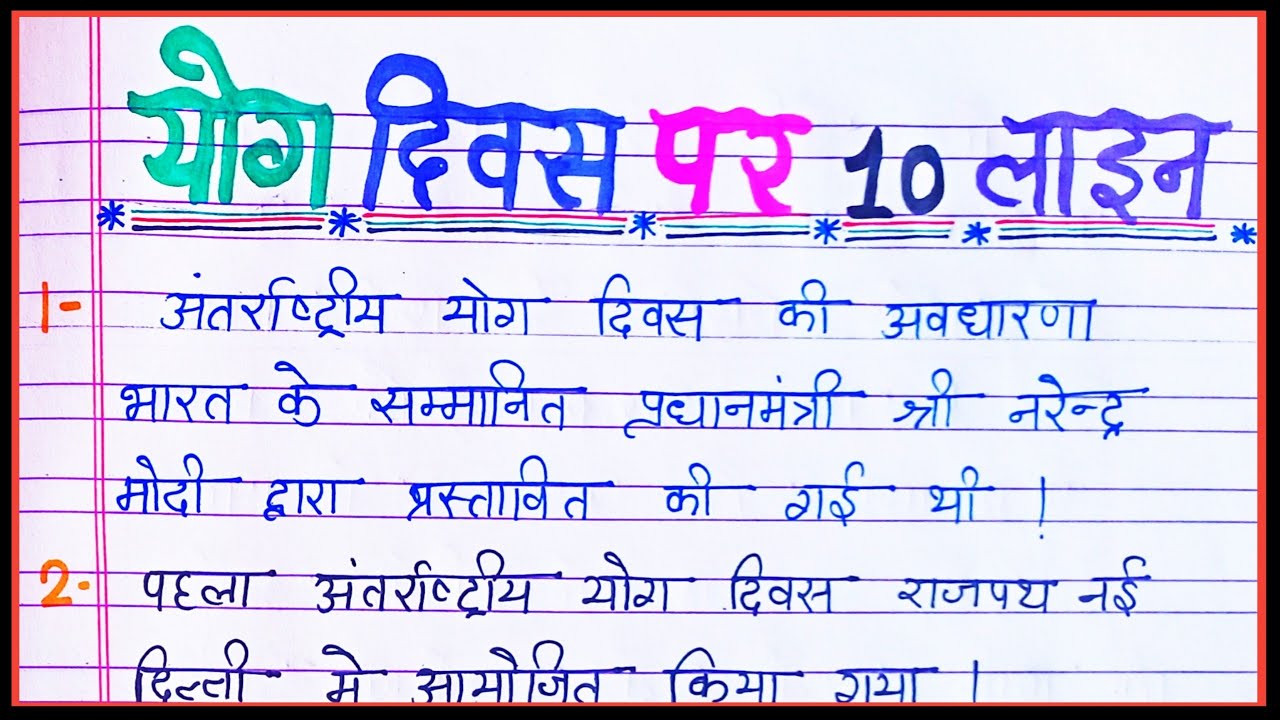 योग दिवस पर 10 लाइन
1- अंतर्राष्ट्रीय योग दिवस की अवधारणा
भारत के सम्मानित प्रधानमंत्री श्री नरेन्द्र
मोदी द्वारा प्रस्तावित की गई थी !
2- पहला अंतर्राष्ट्रीय योग दिवस राजपथ नई
दिल्ली मे आयोजित किया गया ।